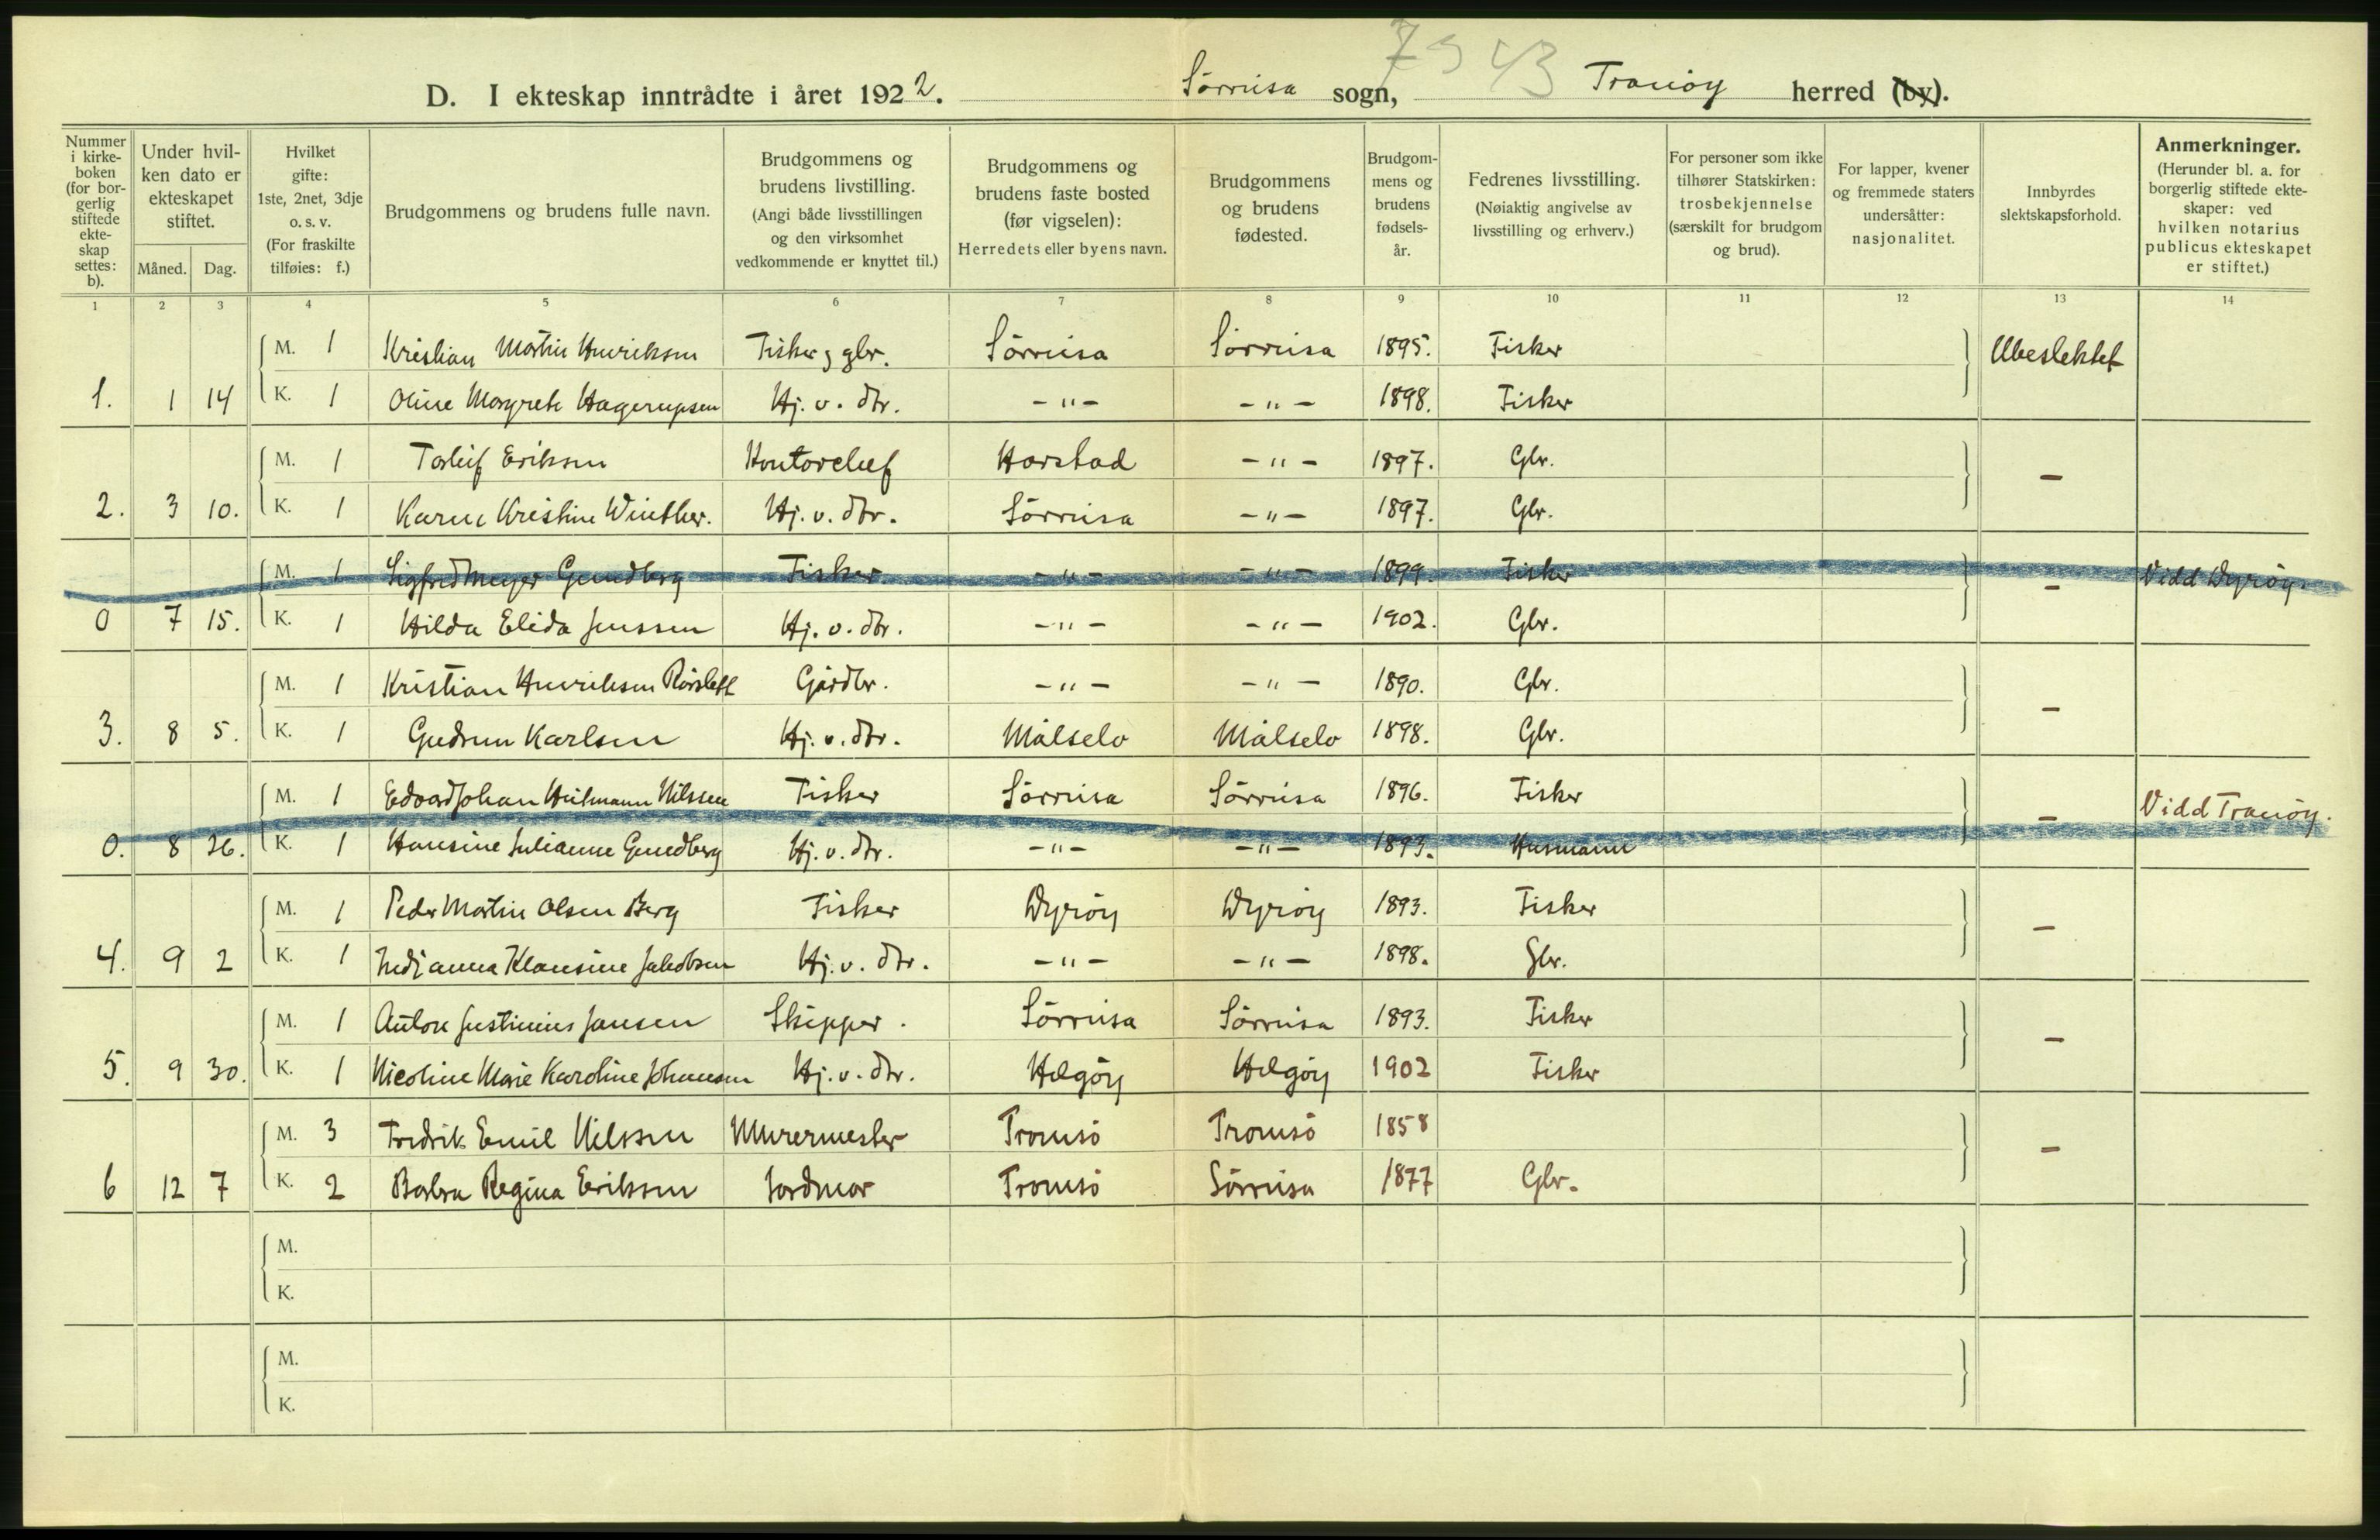 7 9 43
D. I ekteskap inntrådte i året 1922. Sörreisa sogn, Tranöy herred (by).
Nummer i kirke-boken (for bor-gerlig stiftede ekte-skap settes: b).
Under hvil-ken dato er ekteskapet stiftet.
Måned. Dag.
Hvilket gifte: 1ste, 2net, 3dje o. s. v. (For fraskilte tilføies: f.)
Brudgommens og brudens fulle navn.
Brudgommens og brudens livstilling. (Angi både livsstillingen og den virksomhet vedkommende er knyttet til.)
Brudgommens og brudens faste bosted (før vigselen): Herredets eller byens navn.
Brudgommens og brudens fødested.
Brudgom-mens og brudens fødsels-år.
Fedrenes livsstilling. (Nøiaktig angivelse av livsstilling og erhverv.)
For personer som ikke tilhører Statskirken: trosbekjennelse (særskilt for brudgom og brud).
For lapper, kvener og fremmede staters undersåtter: nasjonalitet.
Innbyrdes slektskapsforhold.
Anmerkninger. (Herunder bl. a. for borgerlig stiftede ekte-skaper: ved hvilken notarius publicus ekteskapet er stiftet.)
1 2 3 4 5 6 7 8 9 10 11 12 13 14
M. 1 Kristian Martin Henriksen Fisker, glr. Sörreisa Sörreisa 1895. Fisker Ubeslektet
1. 1 14 K. 1 Oline Margrete Hagerupsen Hj. v. dtr. -"- -"- 1898. Fisker
M. 1 Torleif Eriksen Kontorchef Harstad -"- 1897. Gbr. -
2. 3 10. K. 1 Karen Kristine Winther. Hj. v. dtr. Sörreisa -"- 1897. Gbr.
M. 1 Sigfred Meyer Grundberg Fisker -"- -"- 1899. Fisker - Vidd Dyröy.
0 7 15. K. 1 Hilda Elida Jenssen Hj. v. dtr. -"- -"- 1902. Gbr.
M. 1 Kristian Henriksen Rörslett Gårdbr. -"- -"- 1890. Gbr. -
3. 8 5. K. 1 Gudrun Karlsen Hj. v. dtr. Målselv Målselv 1898. Gbr.
M. 1 Edvard Johan Heitmann Nilssen Fisker Sörreisa Sörreisa 1896. Fisker - Vidd Tranöy.
0. 8 26. K. 1 Hansine Julianne Grundberg Hj. v. dtr. -"- -"- 1893. Husmann
M. 1 Peder Martin Olsen Berg Fisker Dyröy Dyröy 1893. Fisker -
4. 9 2 K. 1 Indianna Klausine Jakobsen Hj. v. dtr. -"- -"- 1898. Gbr.
M. 1 Anton Justinius Jansen Skipper. Sörreisa Sörreisa 1893. Fisker -
5. 9 30. K. 1 Nicoline Marie Karoline Johansen Hj. v. dtr. Helgöy Helgöy 1902 Fisker
M. 3 Fredrik Emil Nilssen Murermester Tromsö Tromsö 1858 -
6 12 7 K. 2 Barbra Regina Eriksen Jordmor Tromsö Sörreisa 1877 Gbr.
M.
K.
M.
K.